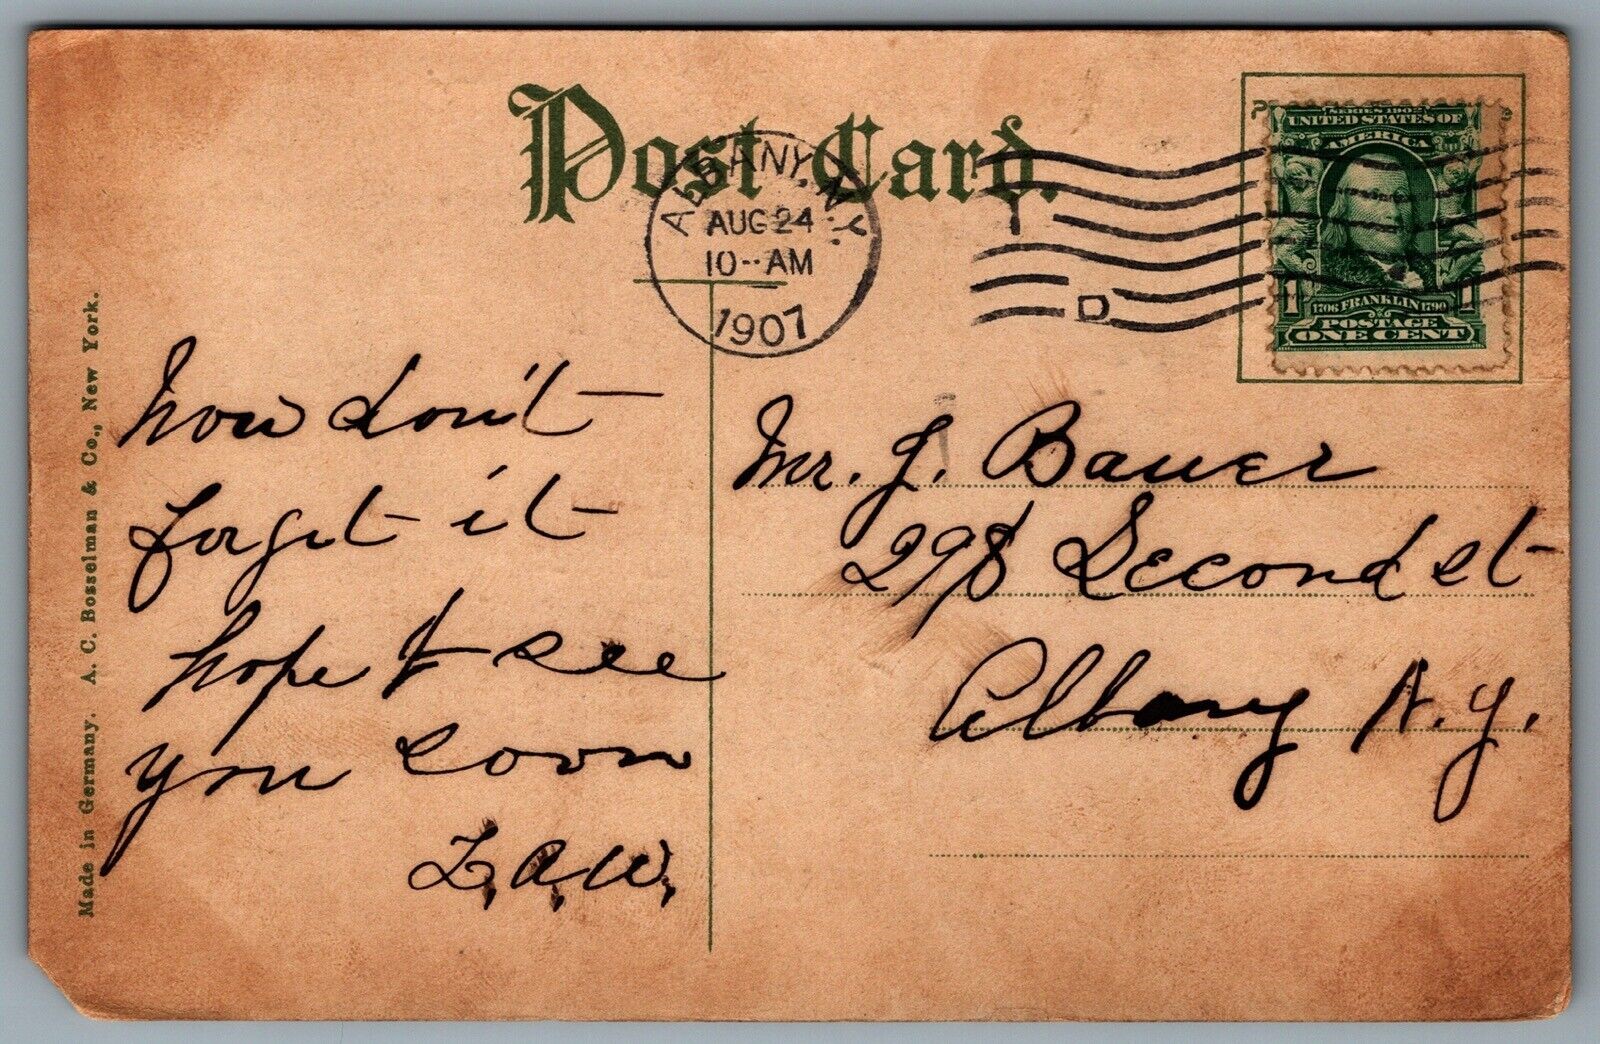 Post Card.
ALBANY, N.Y.
AUG 24
10--AM
1907
D
SERIES 1902
UNITED STATES OF
AMERICA
1706 FRANKLIN 1790
1 1
POSTAGE
ONE CENT
Made in Germany. A. C. Bosselman & Co., New York.
now don't
forget it
hope to see
you soon
L.A.W.
Mr. J. Bauer
298 Second st
Albany N.Y.